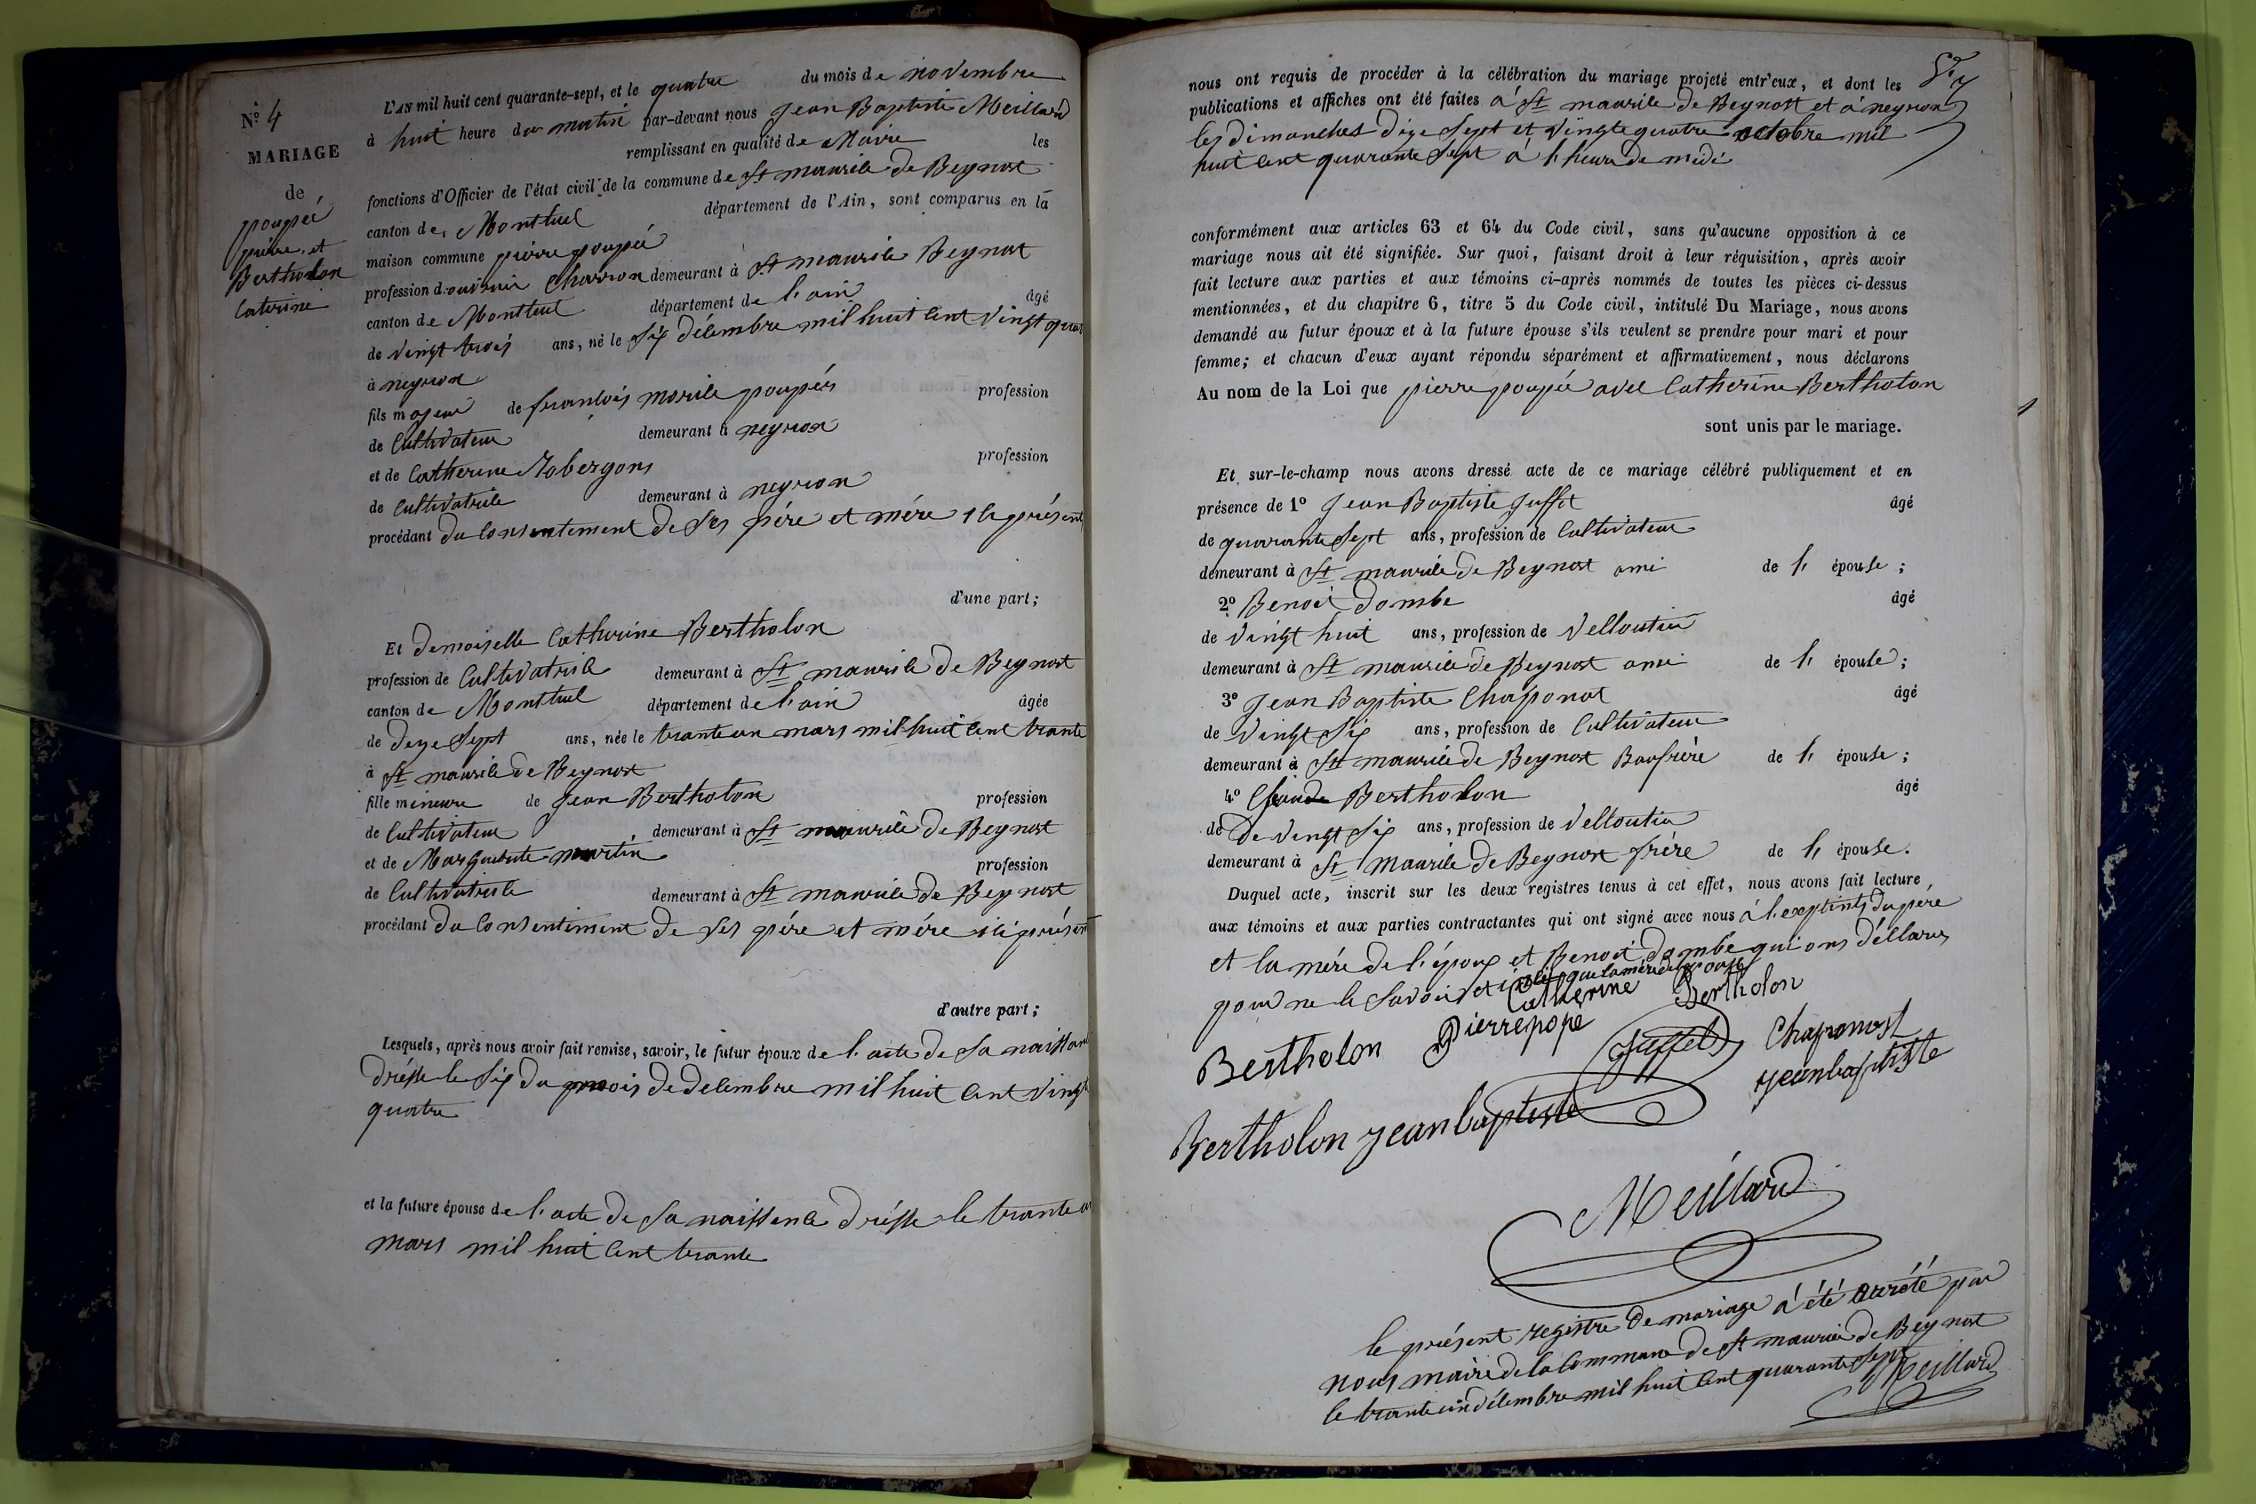 N° 4
MARIAGE
de
poupée
pierre et
Bertholon
Caterine
L'AN mil huit cent quarante-sept, et le quatre du mois de novembre
à huit heure du matin par-devant nous Jean Baptiste Meillard
remplissant en qualité de Maire les
fonctions d'Officier de l'état civil de la commune de St maurice de Beynost
canton de Montluel département de l'Ain, sont comparus en la
maison commune pierre poupée
profession d'ouvrier Charron demeurant à St maurice Beynost
canton de Montluel département de l'ain âgé
de vingt trois ans, né le six décembre mil huit cent vingt quat
à neyron
fils majeur de francois morice poupée profession
de Cultivateur demeurant à neyron
et de Catherine Robergons profession
de cultivatrice demeurant à neyron
procédant du consentement de ses père et mére ici présent
d'une part;
Et demoiselle Catherine Bertholon
profession de Cultivatrice demeurant à St maurice de Beynost
canton de Montluel département de l'ain âgée
de dixe sept ans, née le trante un mars mil huit cent trante
à St maurice de Beynost
fille mineure de Jean Bertholon profession
de Cultivateur demeurant à St maurice de Beynost
et de Marguerite martin profession
de Cultivatrice demeurant à St maurice de Beynost
procédant du consentiment de ses pére et mére ici présent
d'autre part;
Lesquels, après nous avoir fait remise, savoir, le futur époux de l'acte de sa naissan
drésse le six du mois de decembre mil huit cent vingt
quatre
et la future épouse de l'acte de sa naissance drésse le trante u
mars mil huit cent trante
nous ont requis de procéder à la célébration du mariage projeté entr'eux, et dont les
publications et affiches ont été faites á St maurice de Beynost et á neyron
les dimanches dixe sept et vingte quatre octobre mil
huit cent quarante sept á l'heure de midi
conformément aux articles 63 et 64 du Code civil, sans qu'aucune opposition à ce
mariage nous ait été signifiée. Sur quoi, faisant droit à leur réquisition, après avoir
fait lecture aux parties et aux témoins ci-après nommés de toutes les pièces ci-dessus
mentionnées, et du chapitre 6, titre 5 du Code civil, intitulé Du Mariage, nous avons
demandé au futur époux et à la future épouse s'ils veulent se prendre pour mari et pour
femme; et chacun d'eux ayant répondu séparément et affirmativement, nous déclarons
Au nom de la Loi que pierre poupée avec Catherine Bertholon
sont unis par le mariage.
Et sur-le-champ nous avons dressé acte de ce mariage célébré publiquement et en
présence de 1° Jean Baptiste Juffet âgé
de quarante sept ans, profession de Cultivateur
demeurant à St maurice de Beynost ami de l' épouse;
2° Benoit Dombe âgé
de vingt huit ans, profession de Velloutier
demeurant à St maurice de Beynost ami de l' épouse;
3° Jean Baptiste Chaponot âgé
de vingt six ans, profession de Cultivateur
demeurant à St maurice de Beynost Baufrère de l' épouse;
4° Claude Bertholon âgé
de de vingt six ans, profession de Velloutier
demeurant à St maurice de Beynost frère de l' épouse.
Duquel acte, inscrit sur les deux registres tenus à cet effet, nous avons fait lecture
aux témoins et aux parties contractantes qui ont signé avec nous á l'exeptents du père
et la mére de l'époux et Benoit dombe qui ons déllares
pour ne le savoir et que la mère de
Catherine Bertholon
Bertholon Pierre pope Juffet Chaponost
jeanbaptiste
Bertholon jean baptiste
Meillard
le présent registre de mariage á été arrété par
nous maire de la Commune de St maurice de Beynost
le trante un décembre mil huit cent quarante sept
Meillard